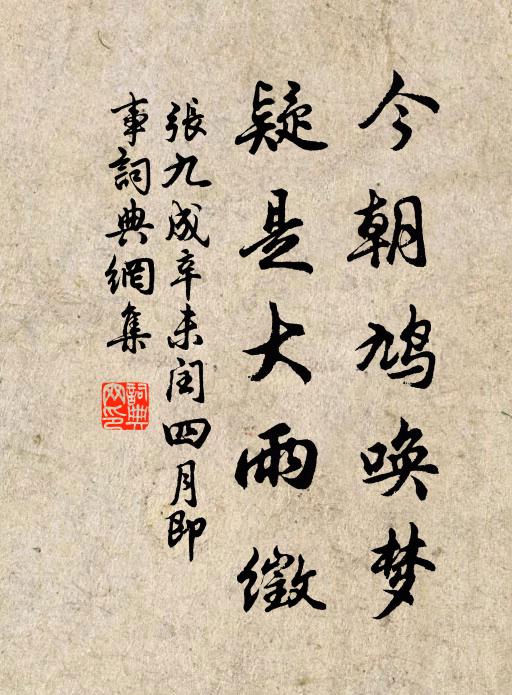 今朝鳩唤梦
疑是大雨徵
張九成辛未闰四月即
事詞典網集
詞典网印